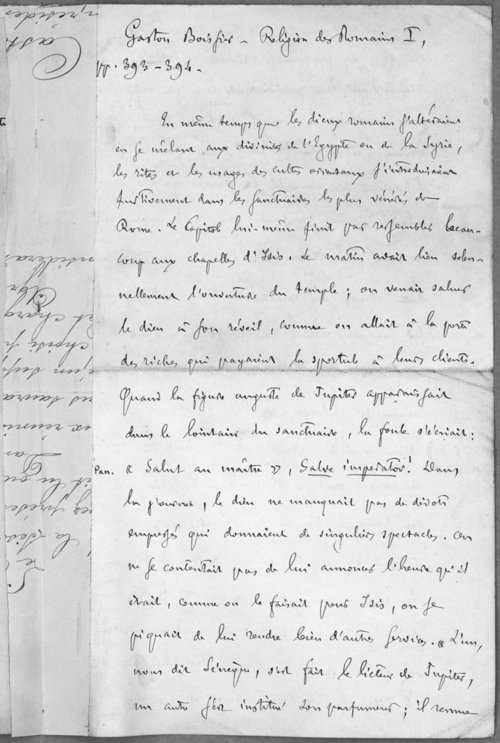 Gaston Boissier - Religion des Romains I,
pp. 393-394.
En même temps que les dieux romains s'altéraient
en se mêlant aux divinités de l'Egypte ou de la Syrie,
les rites et les usages des cultes orientaux s'introduisaient
furtivement dans les sanctuaires les plus vénérés de
Rome. Le Capitole lui-même finit par ressembler beau-
coup aux chapelles d'Isis. Le matin avait lieu solen-
nellement l'ouverture du temple ; on venait saluer
le dieu à son réveil, comme on allait à la porte
des riches qui payaient la sportule à leurs clients.
Quand la figure auguste de Jupiter apparaissait
dans le lointain du sanctuaire, la foule s'écriait :
Pan. « Salut au maître », Salve imperator! Dans
la journée, le dieu ne manquait pas de dévots
empressés qui donnaient de singuliers spectacles. On
ne se contentait pas de lui annoncer l'heure qu'il
était, comme on le faisait pour Isis, on se
piquait de lui rendre bien d'autres services. « L'un,
nous dit Sénèque, s'est fait le licteur de Jupiter,
un autre s'est institué son parfumeur ; il remue